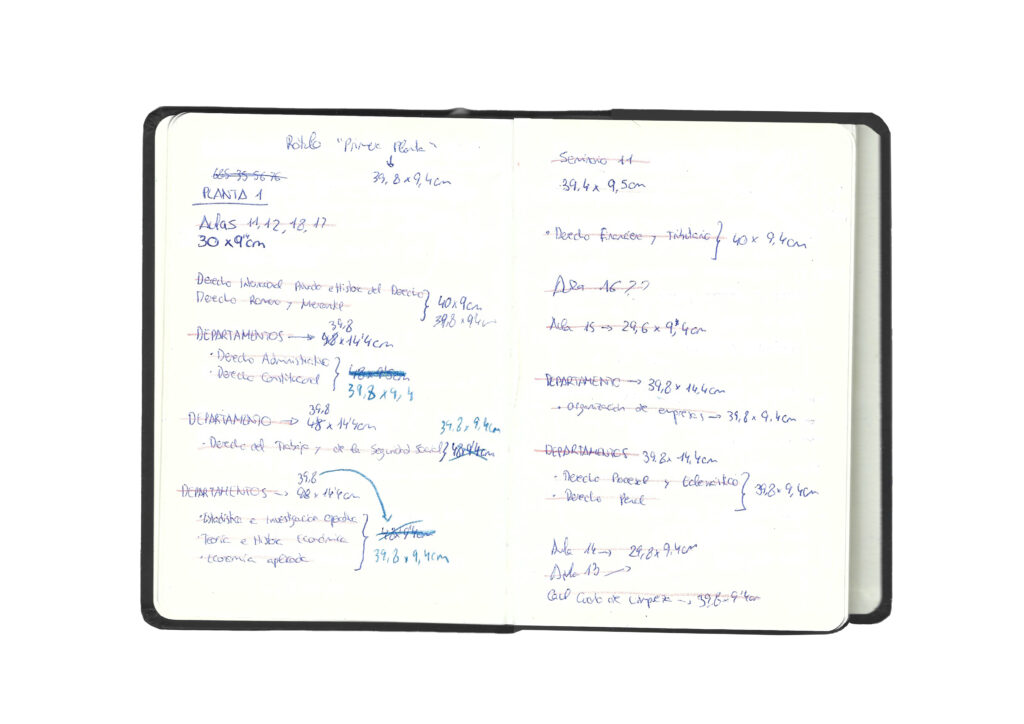 Rótulo "Primera Planta"
39,8 x 9,4cm
PLANTA 1
Aulas 11, 12, 18, 17
30 x 9'4cm
Derecho Internacional Privado e Historia del Derecho
Derecho Romano y Mercantil
40 x 9cm
39,8 x 9'4cm
39,8
DEPARTAMENTOS → 48 x 14'4cm
· Derecho Administrativo
· Derecho Constitucional
48 x 9'5cm
39,8 x 9,4
39,8
DEPARTAMENTO → 48 x 14'4cm
39,8 x 9,4cm
· Derecho del Trabajo y de la Seguridad Social
48 x 9'4cm
39,8
DEPARTAMENTOS → 98 x 14'4cm
· Estadística e Investigación operativa
· Teoría e Historia Económica
· Economía aplicada
48 x 9'4cm
39,8 x 9,4cm
Seminario 11
39,4 x 9,5cm
· Derecho financiero y Tributario } 40 x 9,4cm
Aula 16??
Aula 15 → 29,6 x 9,4cm
DEPARTAMENTO → 39,8 x 14,4cm
· Organización de empresas → 39,8 x 9,4cm
DEPARTAMENTOS 39,8 x 14,4cm
· Derecho Procesal y Eclesiástico
· Derecho Penal
39,8 x 9,4cm
Aula 14 → 29,8 x 9,4cm
Aula 13 →
Cuarto de Limpieza → 39,8 x 9'4cm